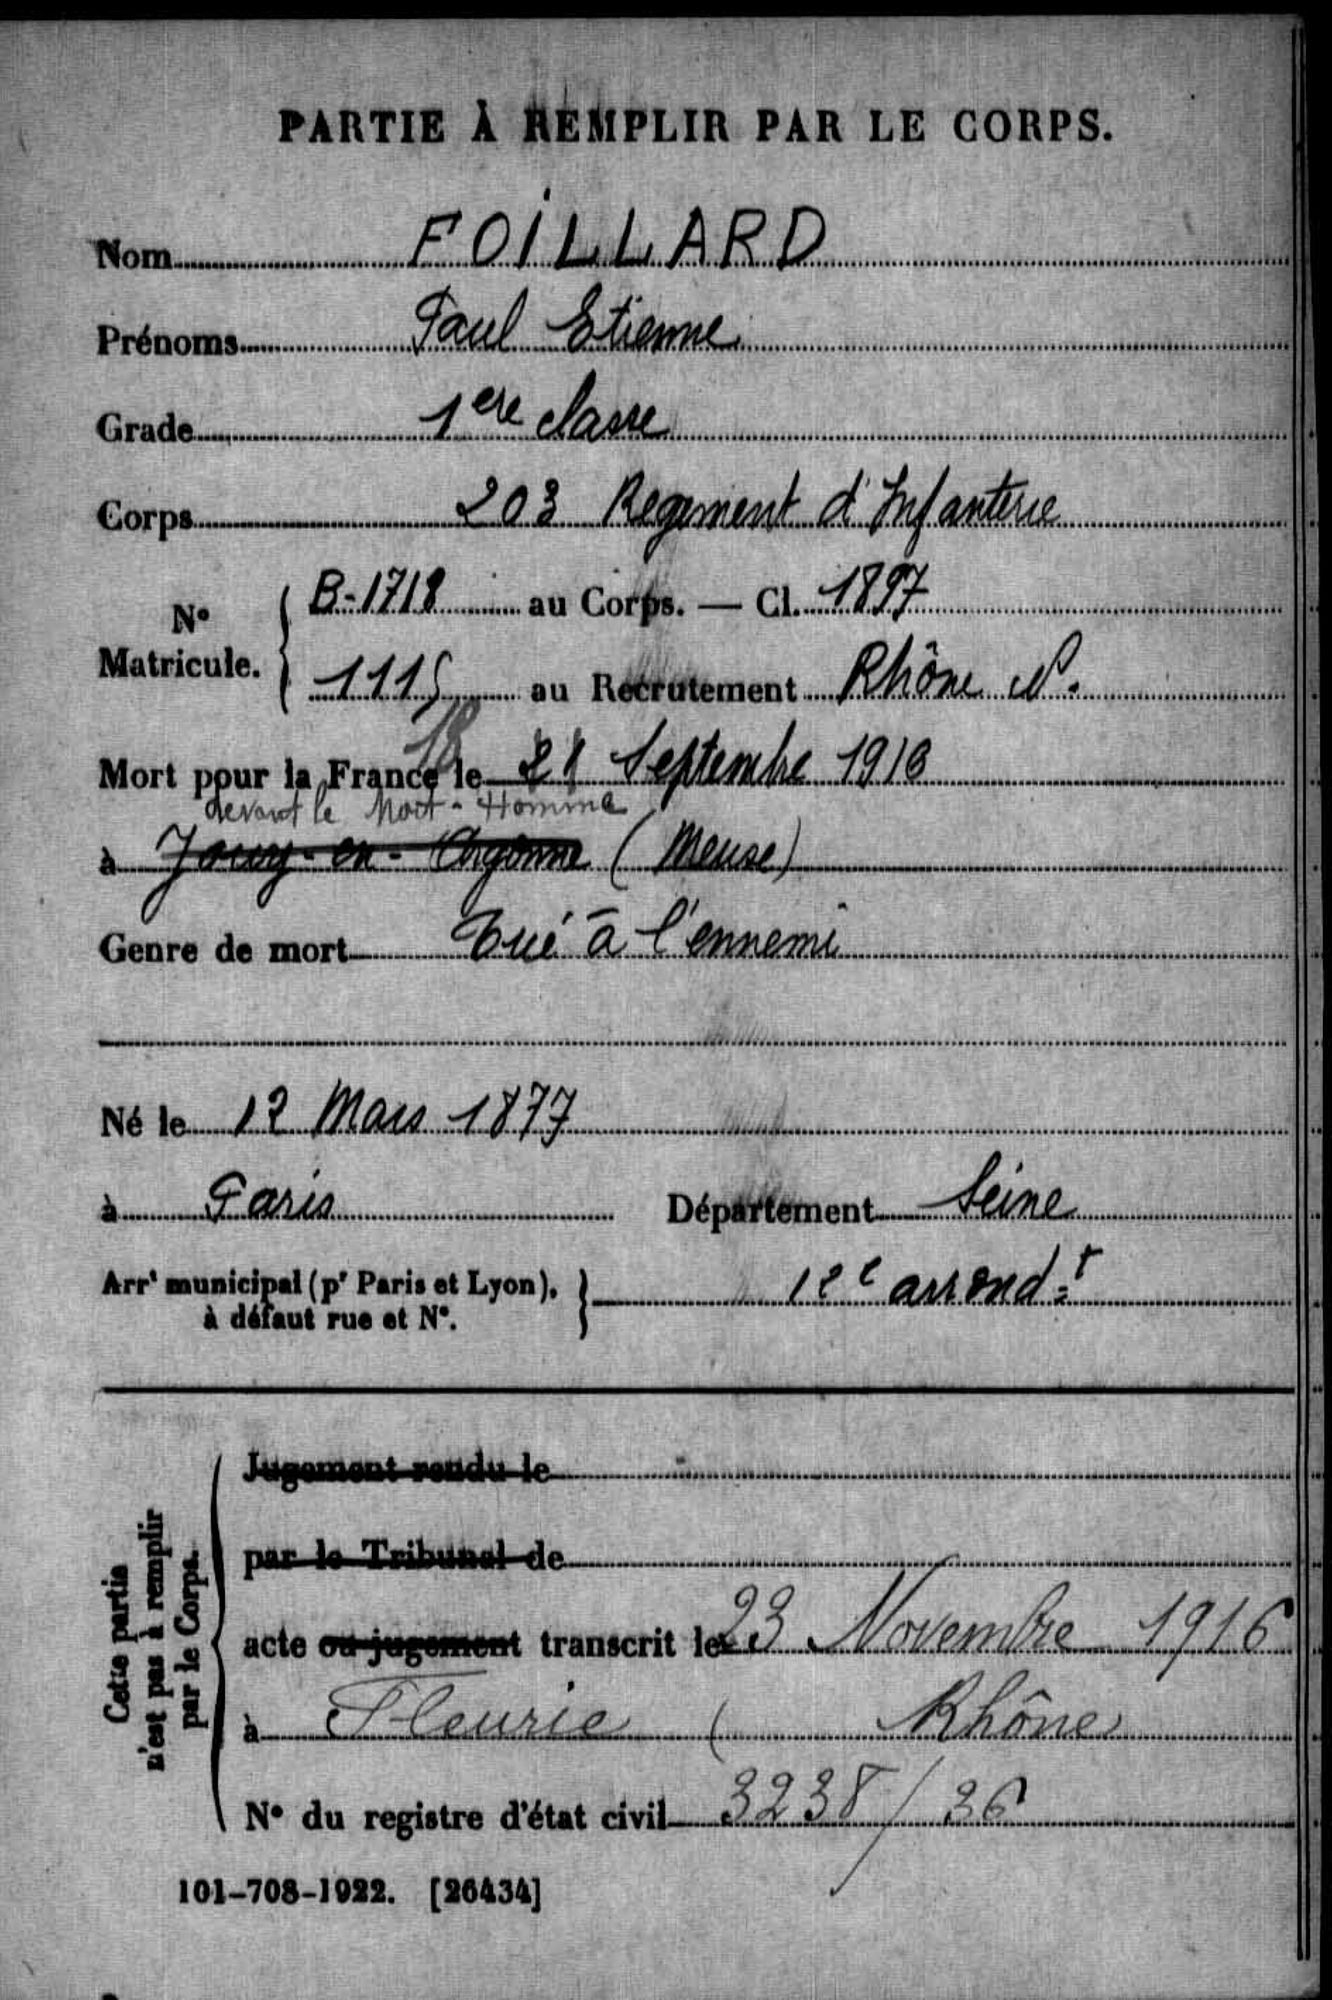 PARTIE À REMPLIR PAR LE CORPS.
Nom FOILLARD
Prénoms Paul Etienne
Grade 1ere classe
Corps 203 Regiment d'Infanterie
N° Matricule.
B-1718 au Corps. — Cl. 1897
1115 au Recrutement Rhône N.
18
Mort pour la France le 21 Septembre 1916
devant le Mort-Homme
à Jouy-en-Argonne (Meuse)
Genre de mort Tué à l'ennemi
Né le 12 Mars 1877
à Paris Département Seine
Arrt municipal (pr Paris et Lyon), à défaut rue et N°.
12e arrondt
Cette partie n'est pas à remplir par le Corps.
Jugement rendu le
par le Tribunal de
acte ou jugement transcrit le 23 Novembre 1916
à Fleurie ( Rhône
N° du registre d'état civil 3238/36
101-708-1922. [26434]